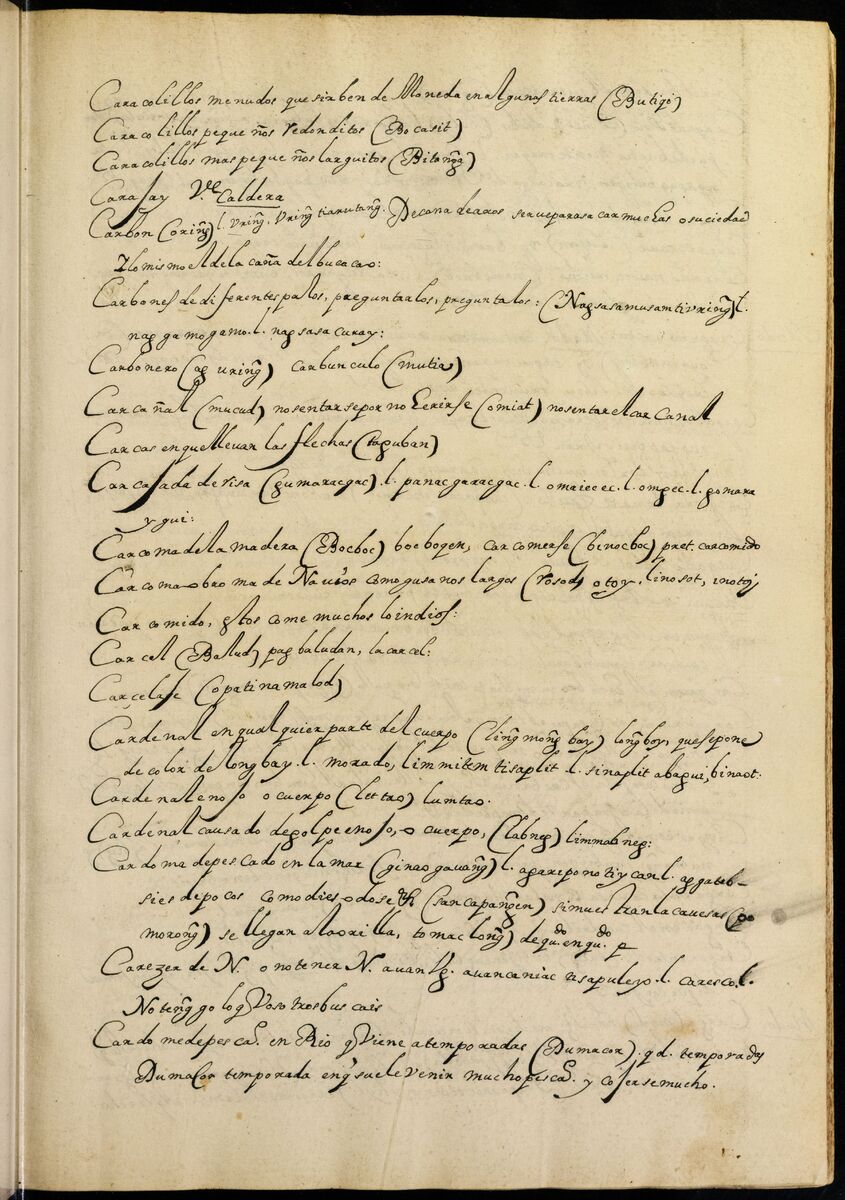 Caracolillos menudos que sirben de Moneda en algunas tierras (Butiqi)
Caracolillos pequeños redonditos (Bocasit)
Caracolillos mas pequeños larguitos (Bitang̃g)
Carajay V.e Caldera
Carbon (oring̃) l. Vring̃, Vring̃ tiarutang̃. De cana de aros se
Y lo mismo el de la caña del bucacao:
Carbones de diferentes palos, preguntarlos, preguntalos: (Nagsasamusamtivring̃) l.
naggamogamo. l. nagsasacuray:
Carbonero (ag uring̃) carbunculo (mutia)
Carcañal (mucud) no sentarse por no herirse (omiat) no sentar el carcanal
Carcas en que llevan las flechas (taguban)
Carcajada de risa (gumaracgac) l. panacgaracgac. l. omaieeec. l. omgec. l. gomara
y gui:
Carcoma de la madera (Bocboc) bocbogen, carcomerse (binocboc) pret. carcomido
Carcoma o broma de Navios como gusanos largos (rosod) otoy, linosot, inotoy
Carcomido, estos come muchos lo indios:
Carcel (Balud) pagbaludan, la carcel:
Carçelaje (opatinamalod)
Cardenal en qualquier parte del cuerpo (ling̃mong̃ bay) long̃boy, que se pone
de color de long̃bay. l. morado, limmitem ti saplit. l. sinaplit abagui, binaot:
Cardenal en ojo o cuerpo (lettao) lumtao.
Cardenal causado de golpe en ojo, o cuerpo, (labneg) limmabneg:
Cardoma de pescado en la mar (ginaogauang̃) l. agarepono tiycan l. aggateb-
sies de pocos como dies o dose (sancapang̃gen) si muestran la cavesas (go
morong̃) se llegan a la orilla, tomac long̃) de qu.do en qu.do
Carezer de N. o no tener N. auan avancaniac ti sapuleyo. l. caresco. l.
No teng̃go lo q̃ Vosotros buscais
Cardome de pesca.o en Rio q̃ Viene a temporadas (Dumacor). q.d. temporadas
Dumacor temporada en q̃ suele venir mucho pesca.o y cojerse mucho.